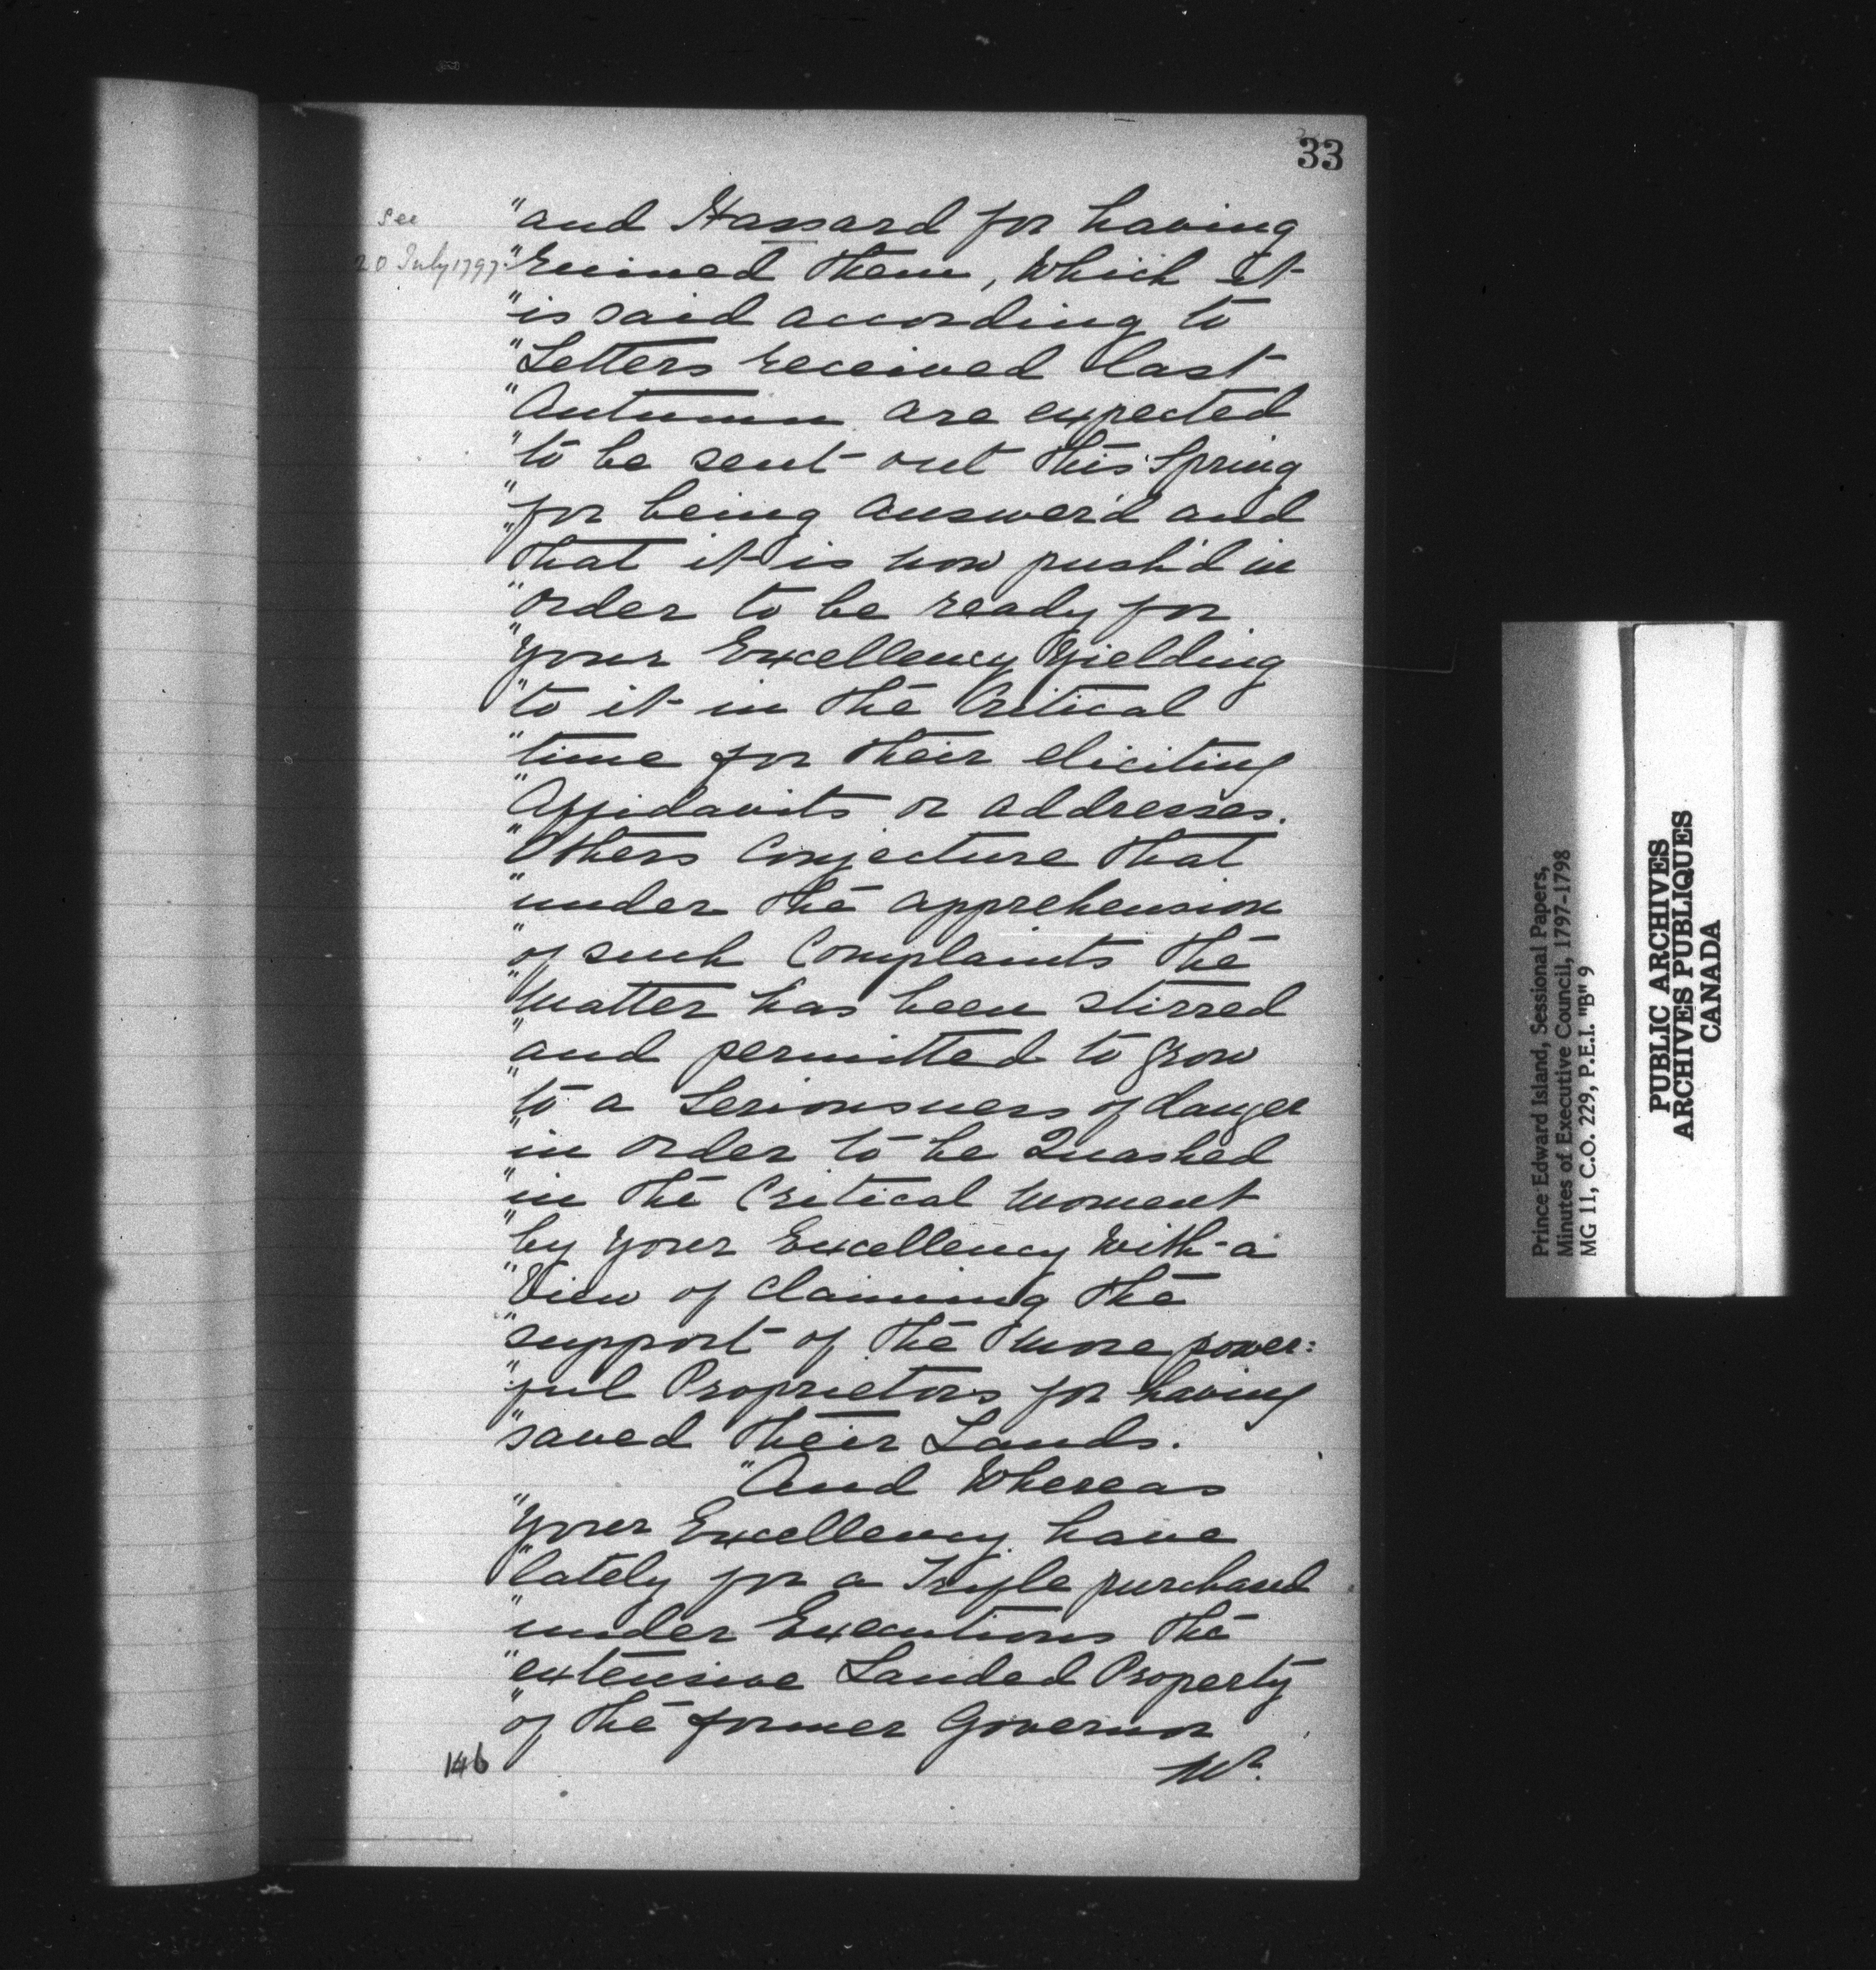 33
see
20 July 1797.
"and Hassard for having
"ruined them, Which it
"is said according to
"Letters received last
"Autumn are expected
"to be sent out this Spring
"for being answer'd and
"that it is now push'd in
"order to be ready for
"your Excellency Yielding
"to it in the Critical
"time for their eliciting
"Affidavits or addresses.
"Others Conjecture that
"under the apprehension
"of such Complaints the
"Matter has been stirred
"and permitted to grow
"to a Seriousness of danger
"in order to be Quashed
"in the Critical Moment
"by your Excellency With a
"View of claiming the
"support of the more power:
"ful Proprietors for having
"saved their Lands.
"And Whereas
"your Excellency have
"lately for a Trifle purchased
"under Executions the
"extensive Landed Property
"of the former Governor
146
Prince Edward Island, Sessional Papers,
Minutes of Executive Council, 1797-1798
MG 11, C.O. 229, P.E.I. "B" 9
PUBLIC ARCHIVES
ARCHIVES PUBLIQUES
CANADA